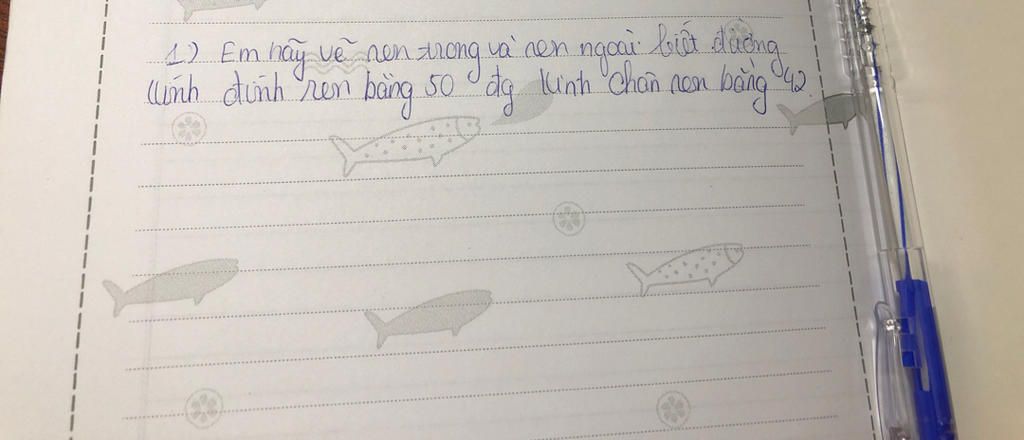 1) Em hãy vẽ ren trong và ren ngoài biết đường
kính đỉnh ren bằng 50 đg kính chân ren bằng 42.